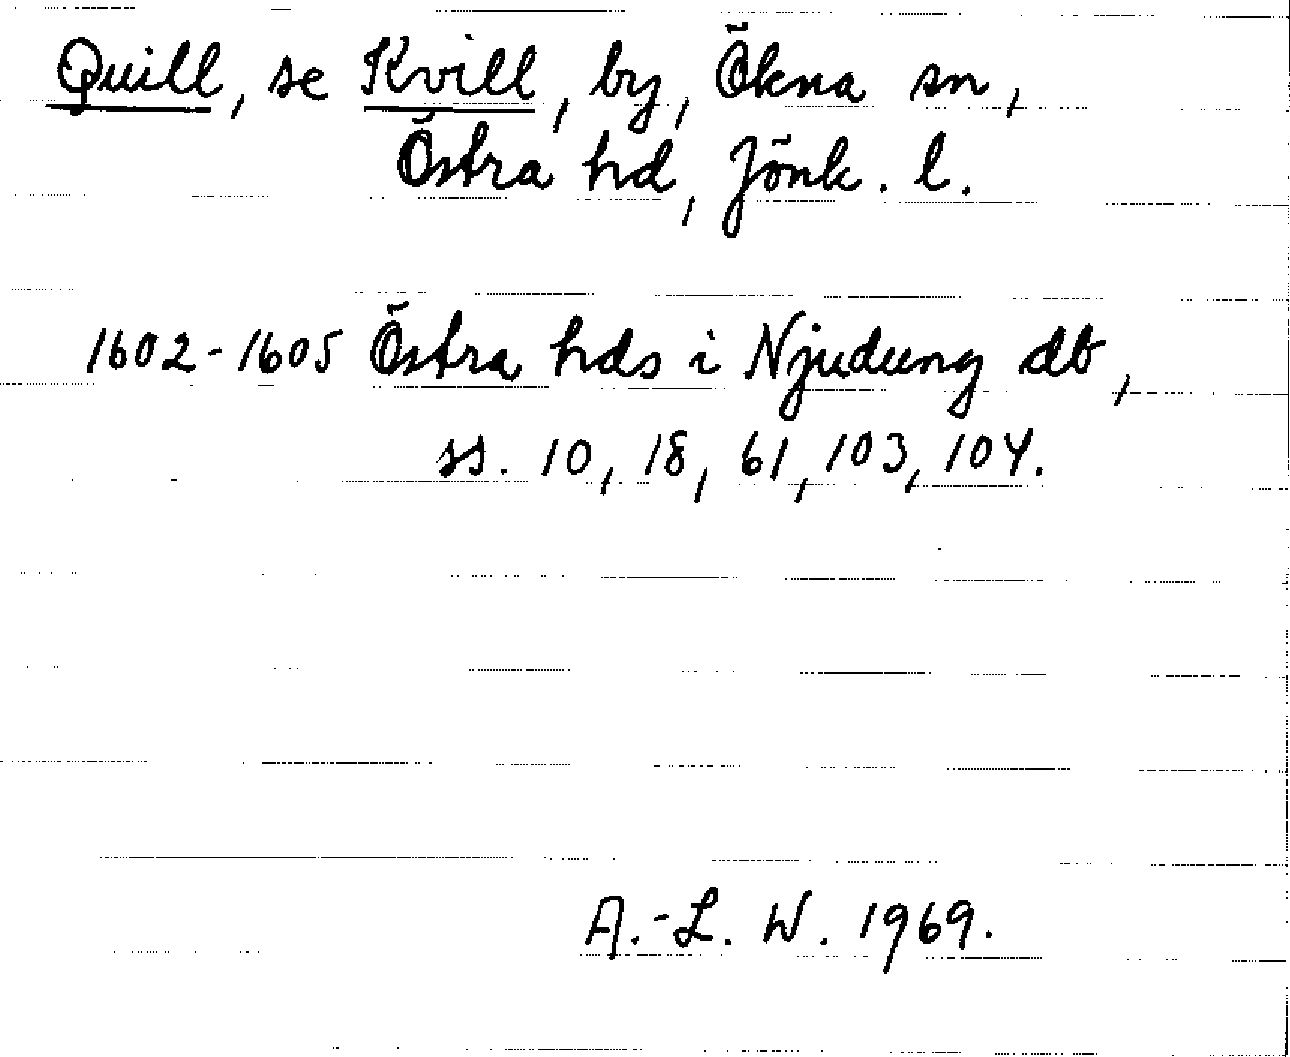 Quill, se Kvill, by, Ökna sn,
Östra hd, Jönk. l.
1602-1605 Östra hds i Njudung db,
ss. 10, 18, 61, 103, 104.
A.-L. W. 1969.